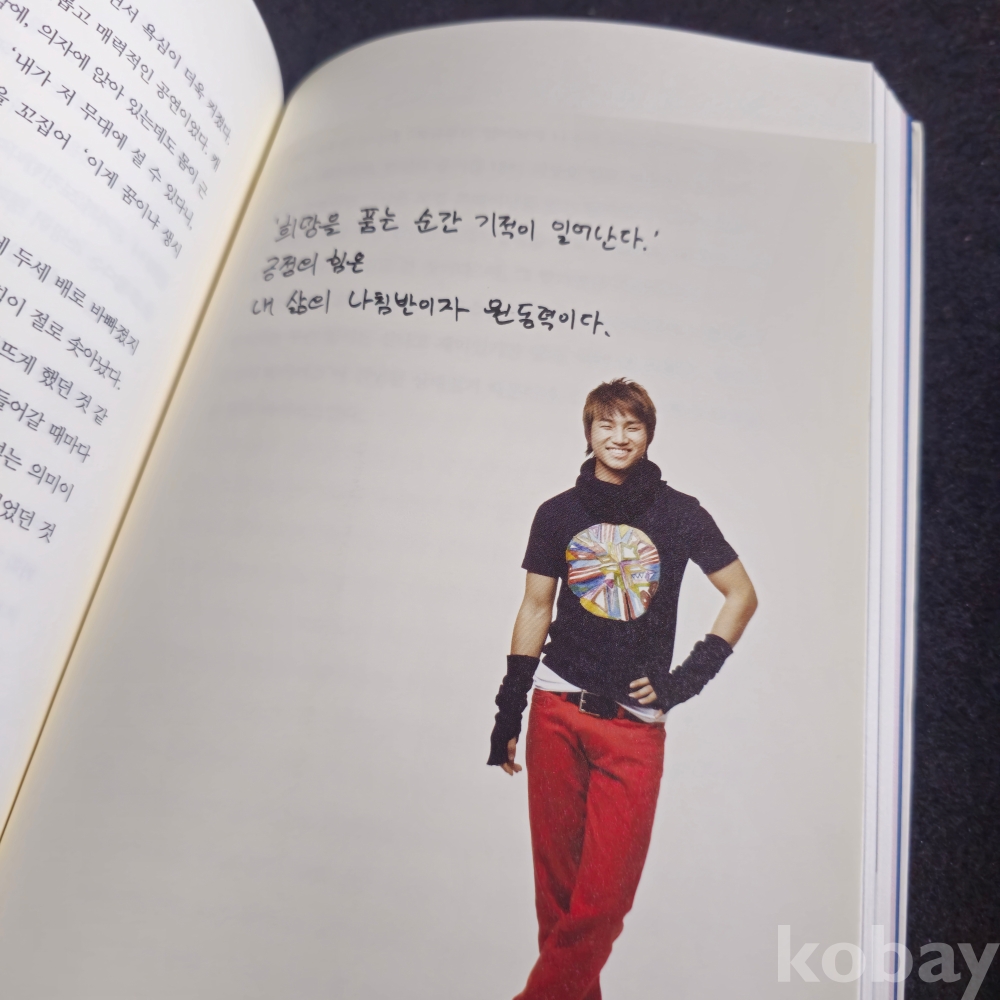 욕심이 더욱 커졌다.
매력적인 공연이었다.
의자에 앉아 있는데도 몸이 근
‘내가 저 무대에 설 수 있다니,
꼬집어 ‘이게 꿈이냐 생시
두세 배로 바빠졌지
절로 솟아났다.
뜨게 했던 것 같
들어갈 때마다
의미이
것
‘희망을 품는 순간 기적이 일어난다.’
긍정의 힘은
내 삶의 나침반이자 원동력이다.
kobay